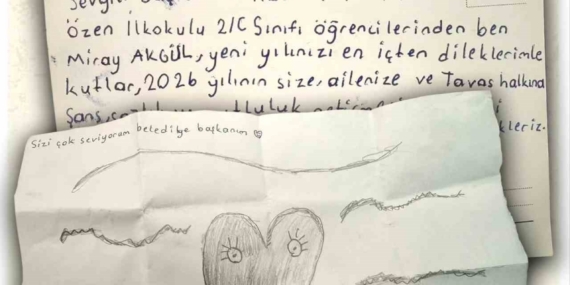 Özen İlkokulu 2/C Sınıfı öğrencilerinden ben
Miray AKGÜL, yeni yılınızı en içten dileklerimle
kutlar, 2026 yılının size, ailenize ve Tavas halkına
Şans,
Sizi çok seviyorum belediye başkanım